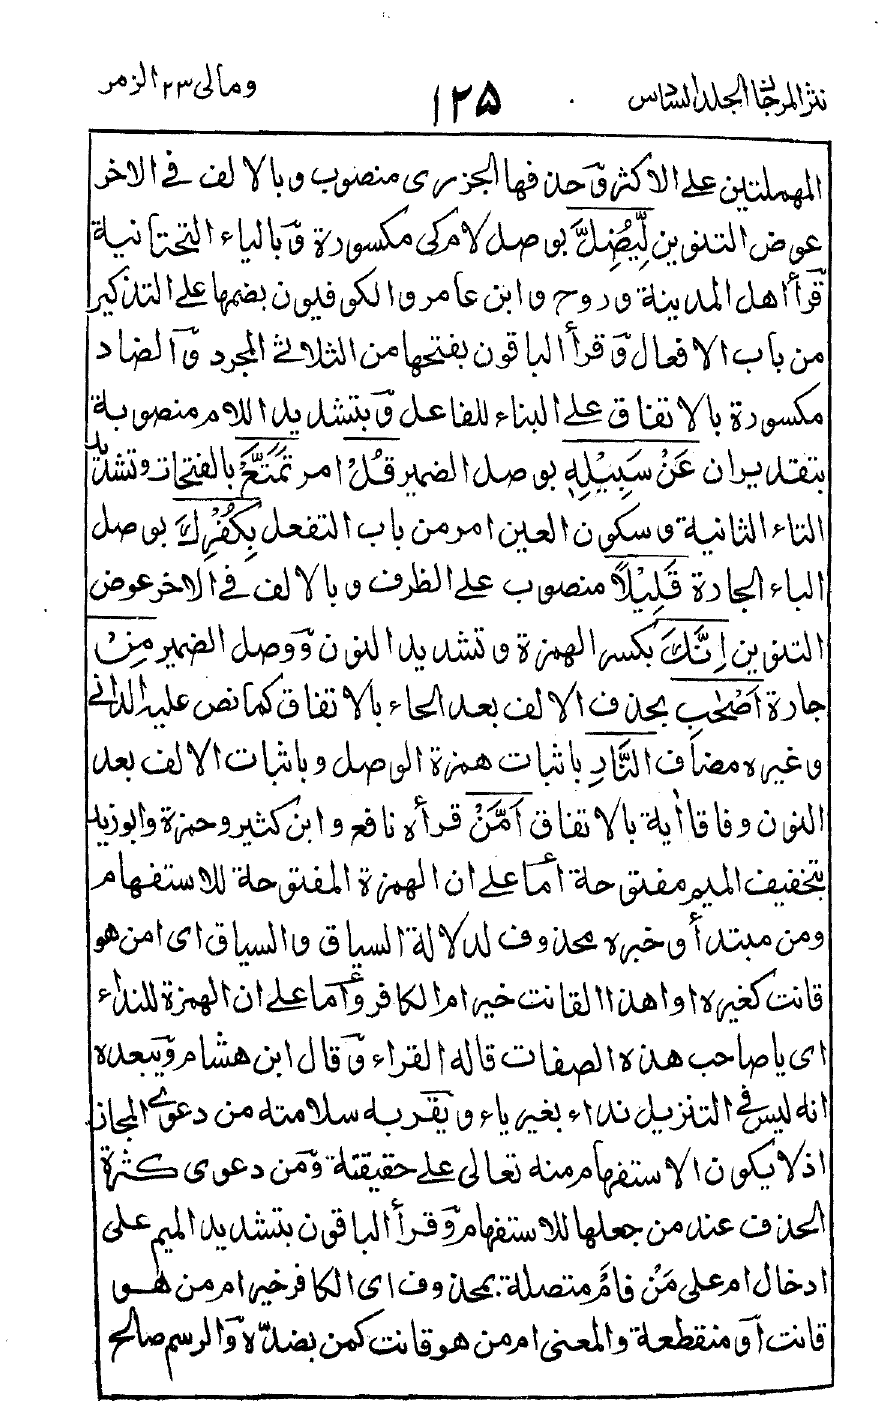 نثر المرجان الجلد السادس ١٢٥ ومالى ٢٣ الزمر
المهملتين على الاكثر وَحذفها الجزرى منصوب وبالالف فى الاخر
عوض التنوين لِّيُضِلَّ بوصل لام كى مكسورة وَبالياء التحتانية
قرأ اهل المدينة وروح وابن عامر والكوفيون بضمها على التذكير
من باب الافعال وَقرأ الباقون بفتحها من الثلاثى المجرد وَالضاد
مكسورة بالاتفاق على البناء للفاعل وَبتشديد اللام منصوبة
بتقدير ان عَنْ سَبِيْلِهٖ بوصل الضمير قُلْ امر تَمَتَّعْ بالفتحات وتشديد
التاء الثانية وسكون العين امر من باب التفعل بِكُفْرِكَ بوصل
الباء الجارة قَلِيْلًا منصوب على الظرف وبالالف فى الاخر عوض
التنوين اِنَّكَ بكسر الهمزة وتشديد النون وَوصل الضمير مِنْ
جارة اَصْحٰبِ بحذف الالف بعد الحاء بالاتفاق كما نص عليه الدانى
وغيره مضاف النَّارِ باثبات همزة الوصل وباثبات الالف بعد
النون وفاقا أية بالاتفاق اَمَّنْ قرأه نافع وابن كثير وحمزة وابوزيد
بتخفيف الميم مفتوحة أما على ان الهمزة المفتوحة للاستفهام
ومن مبتدأ وخبره محذوف لدلالة السباق والسياق اى امن هو
قانت كغيره او اهذا القانت خير ام الكافر وأما على ان الهمزة للنداء
اى ياصاحب هذه الصفات قاله الفراء وَقال ابن هشام وَيبعده
انه ليس فى التنزيل نداء بغير ياء ويقربه سلامته من دعوى المجاز
اذ لا يكون الاستفهام منه تعالى على حقيقتة وَمن دعوى كثرة
الحذف عند من جعلها للاستفهام وَقرأ الباقون بتشديد الميم على
ادخال ام على مَنْ فام متصلة بمحذوف اى الكافر خير ام من هو
قانت اَو منقطعة والمعنى ام من هو قانت كمن بضدّه وَالرسم صالح